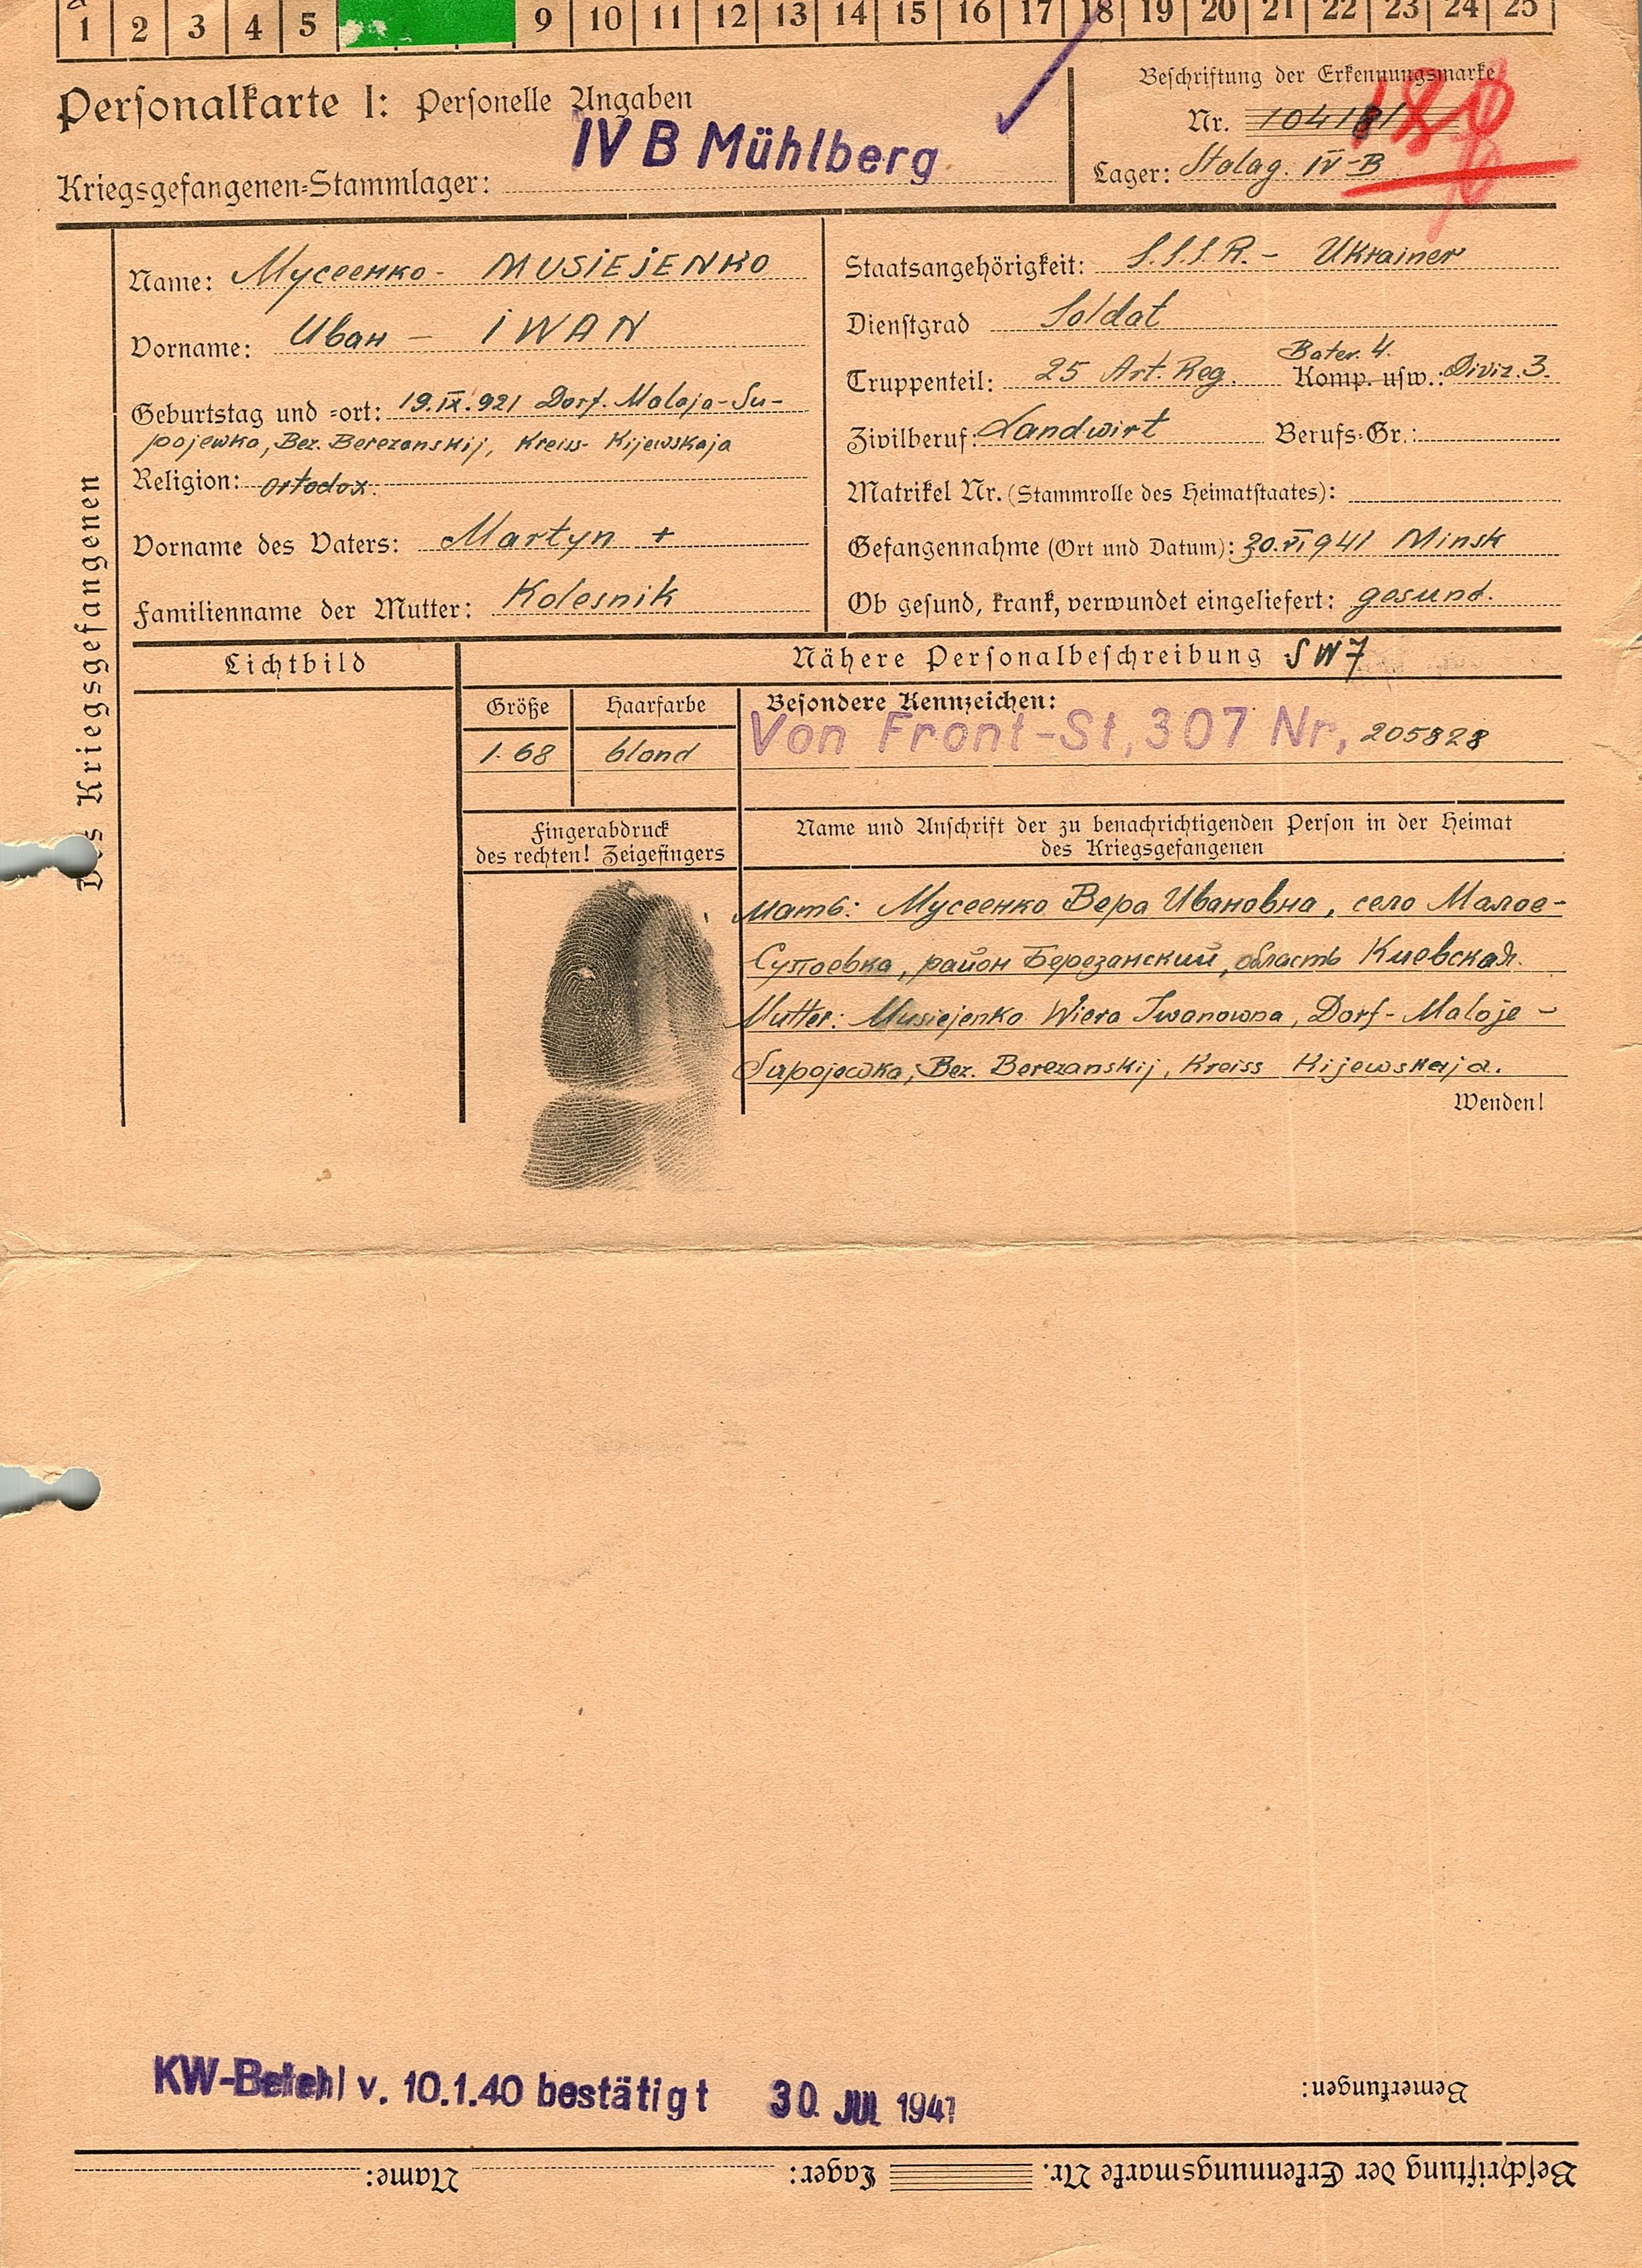 1 2 3 4 5 9 10 11 12 13 14 15 16 17 18 19 20 21 22 23 24 25
Personalkarte I: Personelle Angaben
IV B Mühlberg
Kriegsgefangenen-Stammlager:
Beschriftung der Erkennungsmarke
Nr. 104181
Lager: Stalag. IV-B
Des Kriegsgefangenen
Name: Мусеенко- MUSIEJENKO
Vorname: Иван - IWAN
Geburtstag und =ort: 19.IX.921 Dorf. Malaja-Su-
pojewka, Bez. Berezanskij, Kreiss- Kijewskaja
Religion: ortodox.
Vorname des Vaters: Martyn +
Familienname der Mutter: Kolesnik
Staatsangehörigkeit: S.S.S.R. - Ukrainer
Dienstgrad Soldat
Bater. 4.
Truppenteil: 25 Art. Reg. Komp. usw.: Diviz. 3.
Zivilberuf: Landwirt Berufs-Gr.:
Matrikel Nr. (Stammrolle des Heimatstaates):
Gefangennahme (Ort und Datum): 30.VI 941 Minsk
Ob gesund, krank, verwundet eingeliefert: gesund.
Lichtbild
Nähere Personalbeschreibung SW7
Größe Haarfarbe
1.68 blond
Besondere Kennzeichen:
Von Front-St, 307 Nr, 205828
Fingerabdruck
des rechten! Zeigefingers
Name und Anschrift der zu benachrichtigenden Person in der Heimat
des Kriegsgefangenen
Мать: Мусеенко Вера Ивановна, село Малое-
Супоевка, район Березанский, область Киевская.
Mutter: Musiejenko Wiera Iwanowna, Dorf- Maloje-
Supojewka, Bez. Berezanskij, Kreiss Kijewskaja.
Wenden!
KW-Befehl v. 10.1.40 bestätigt 30. JUL 1941
Bemerkungen:
Beschriftung der Erkennungsmarke Nr. Lager: Name: